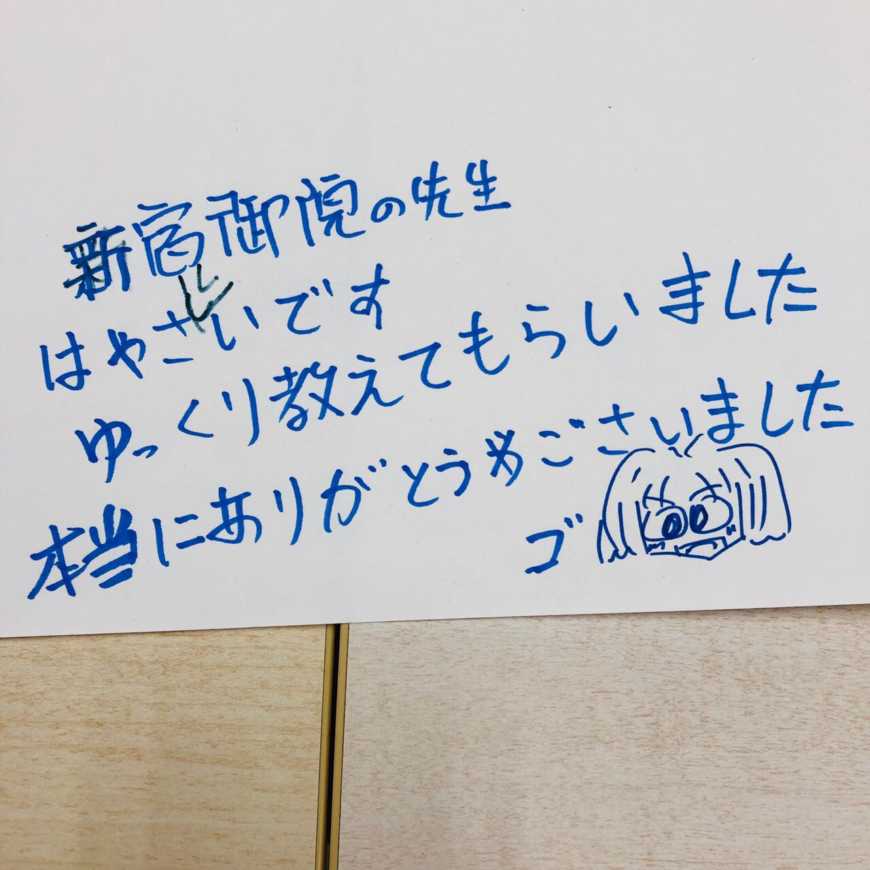 新宿御院の先生
はやさしいです
ゆっくり教えてもらいました
本当にありがとうごさいました
ゴ